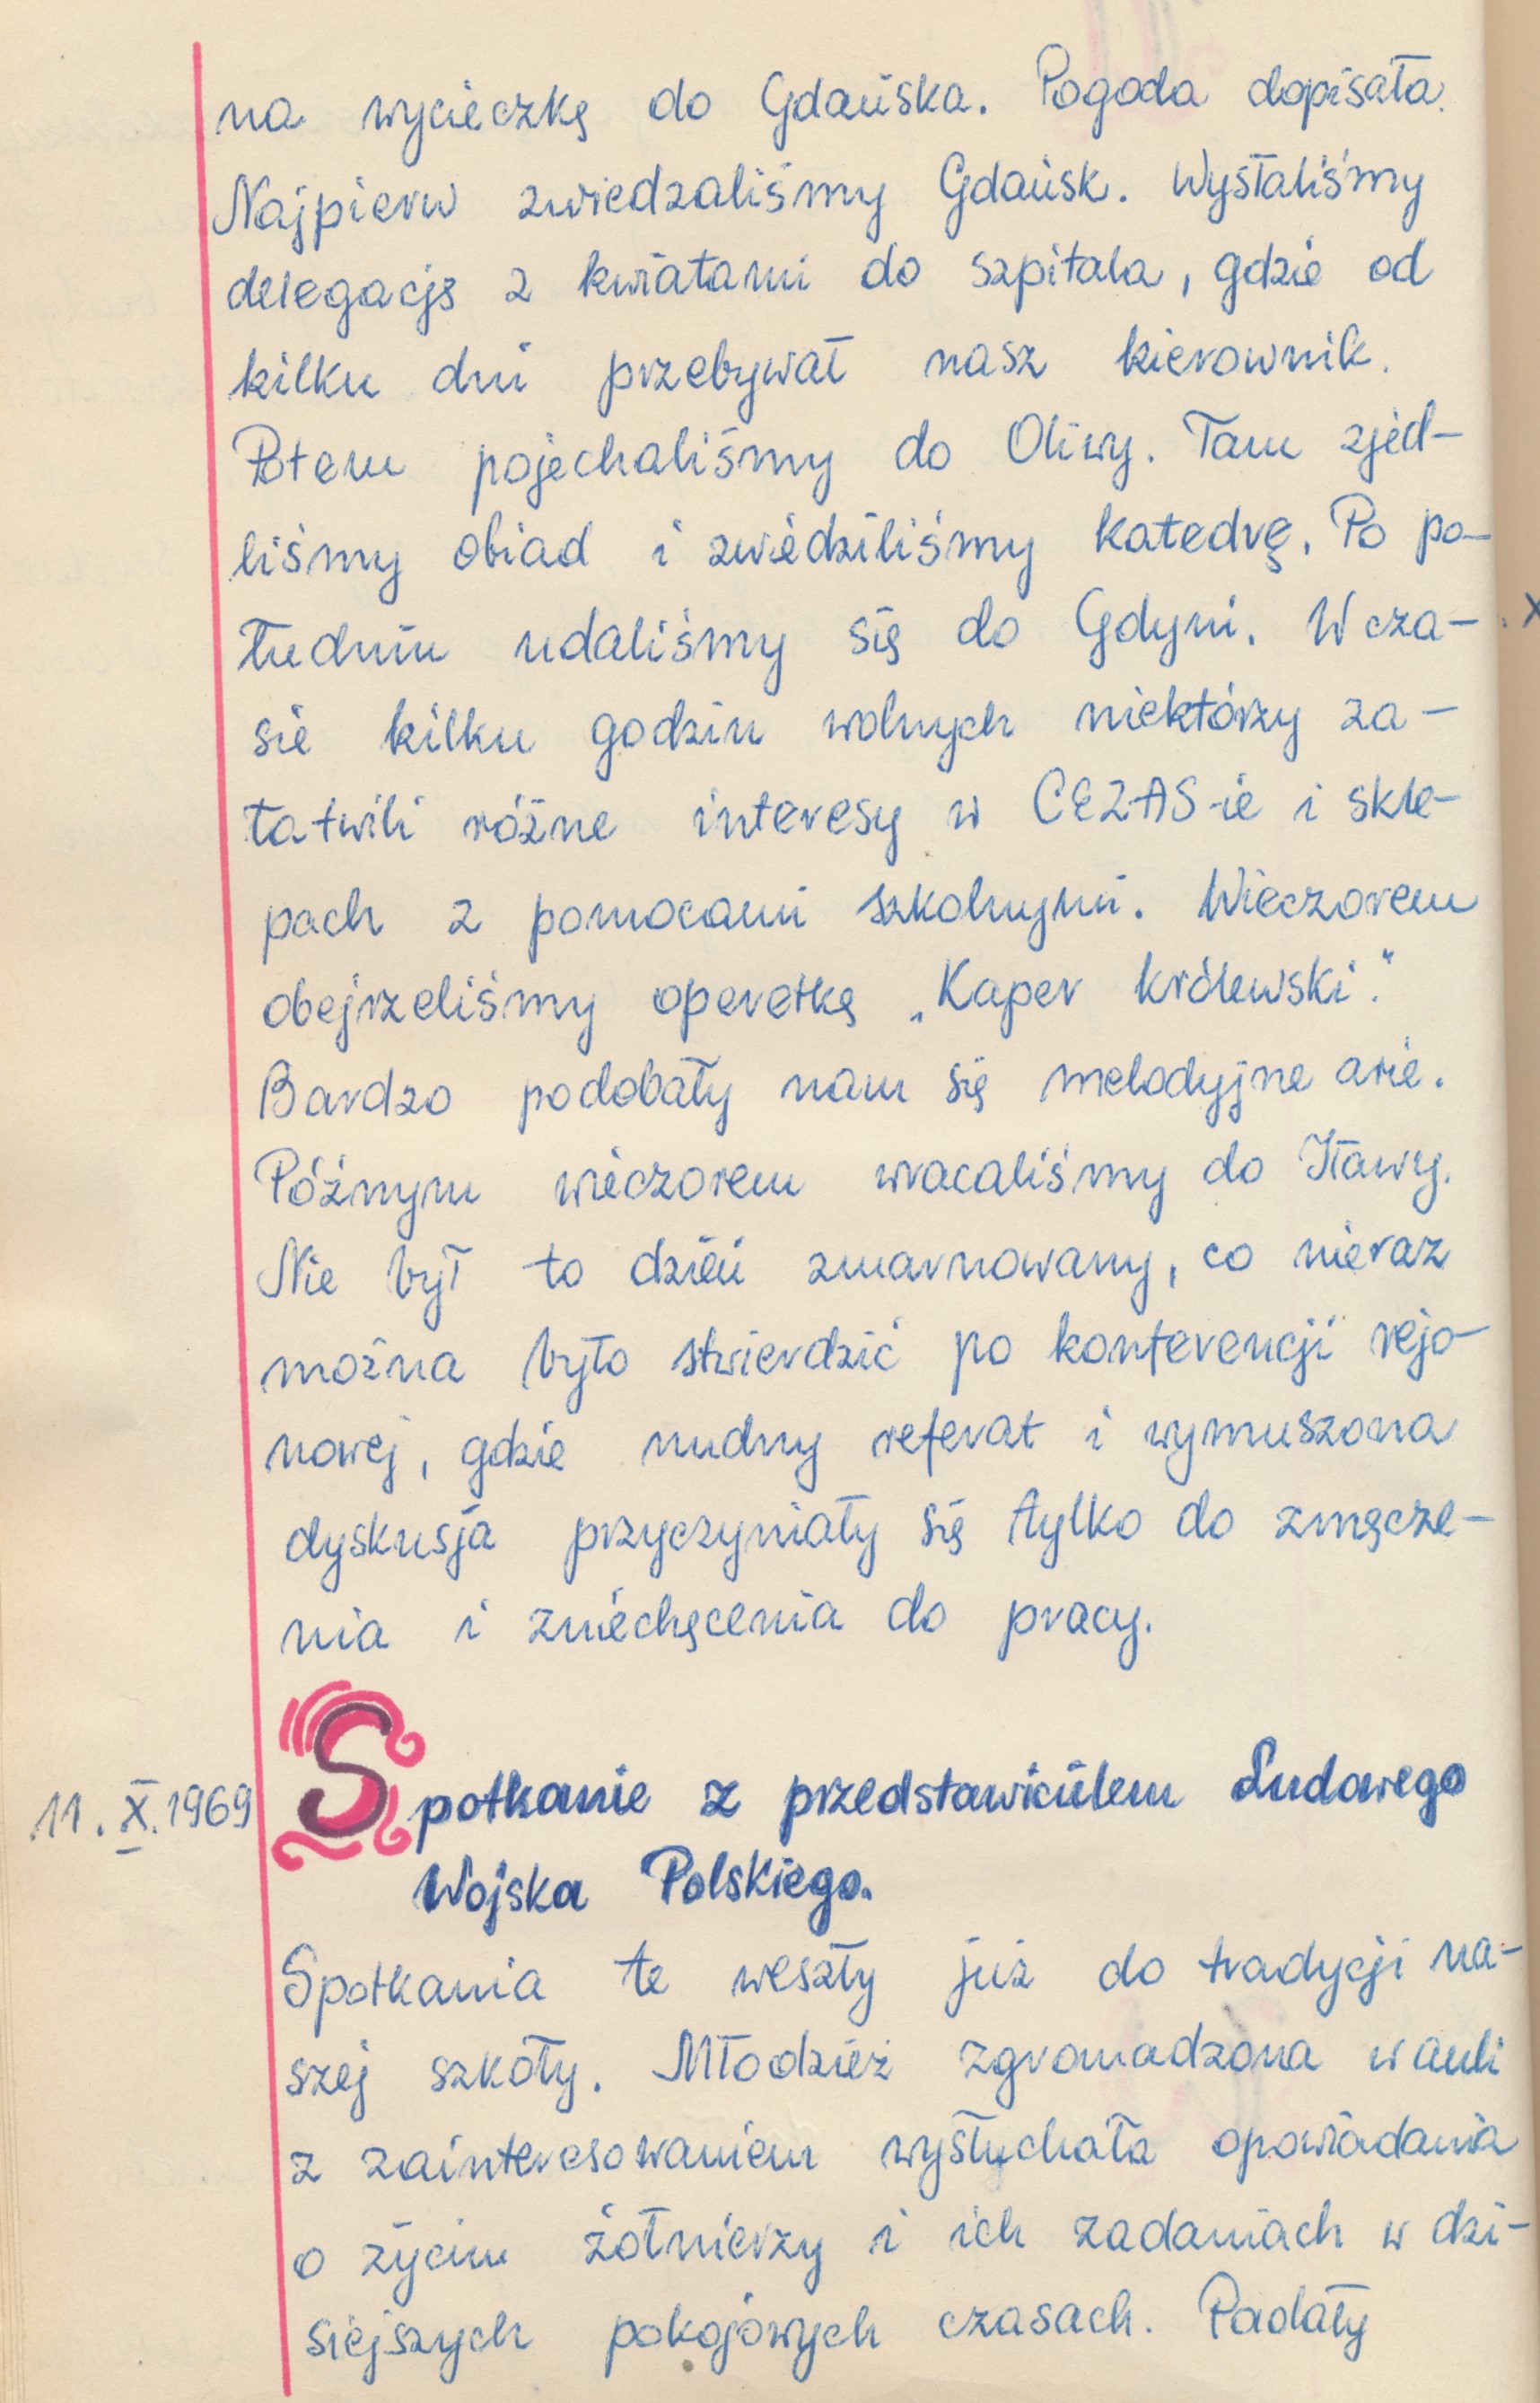 na wycieczkę do Gdańska. Pogoda dopisała.
Najpierw zwiedzaliśmy Gdańsk. Wysłaliśmy
delegację z kwiatami do szpitala, gdzie od
kilku dni przebywał nasz kierownik.
Potem pojechaliśmy do Oliwy. Tam zjed-
liśmy obiad i zwiedziliśmy katedrę. Po po-
łudniu udaliśmy się do Gdyni. W cza-
sie kilku godzin wolnych niektórzy za-
łatwili różne interesy w CEZAS-ie i skle-
pach z pomocami szkolnymi. Wieczorem
obejrzeliśmy operetkę „Kaper królewski".
Bardzo podobały nam się melodyjne arie.
Późnym wieczorem wracaliśmy do Iławy.
Nie był to dzień zmarnowany, co nieraz
można było stwierdzić po konferencji rejo-
nowej, gdzie nudny referat i wymuszona
dyskusja przyczyniały się tylko do zmęcze-
nia i zniechęcenia do pracy.
11. X. 1969 Spotkanie z przedstawicielem Ludowego
Wojska Polskiego.
Spotkania te weszły już do tradycji na-
szej szkoły. Młodzież zgromadzona w auli
z zainteresowaniem wysłuchała opowiadania
o życiu żołnierzy i ich zadaniach w dzi-
siejszych pokojowych czasach. Padały